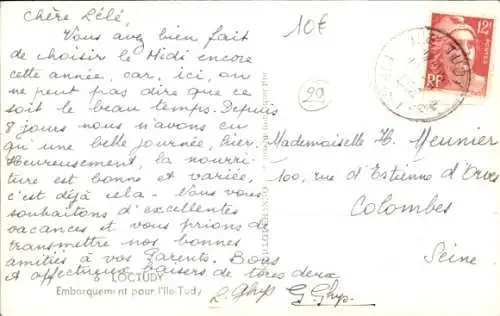 Chère Lélé,
10€
Vous avez bien fait
de choisir le Midi encore
cette année, car, ici, on
ne peut pas dire que ce
soit le beau temps. Depuis
8 jours nous n'avons eu
qu'une belle journée, hier.
Heureusement, la nourri-
ture est bonne et variée,
c'est déjà cela. Nous vous
souhaitons d'excellentes
vacances et vous prions de
transmettre nos bonnes
amitiés à vos Parents. Bons
et affectueux baisers de toutes deux
12F
POSTES
RF
TUDY
29
Mademoiselle H. Meunier
100, rue d'Estienne d'Orves
Colombes
Seine
6 LOCTUDY
Embarquement pour l'Ile-Tudy